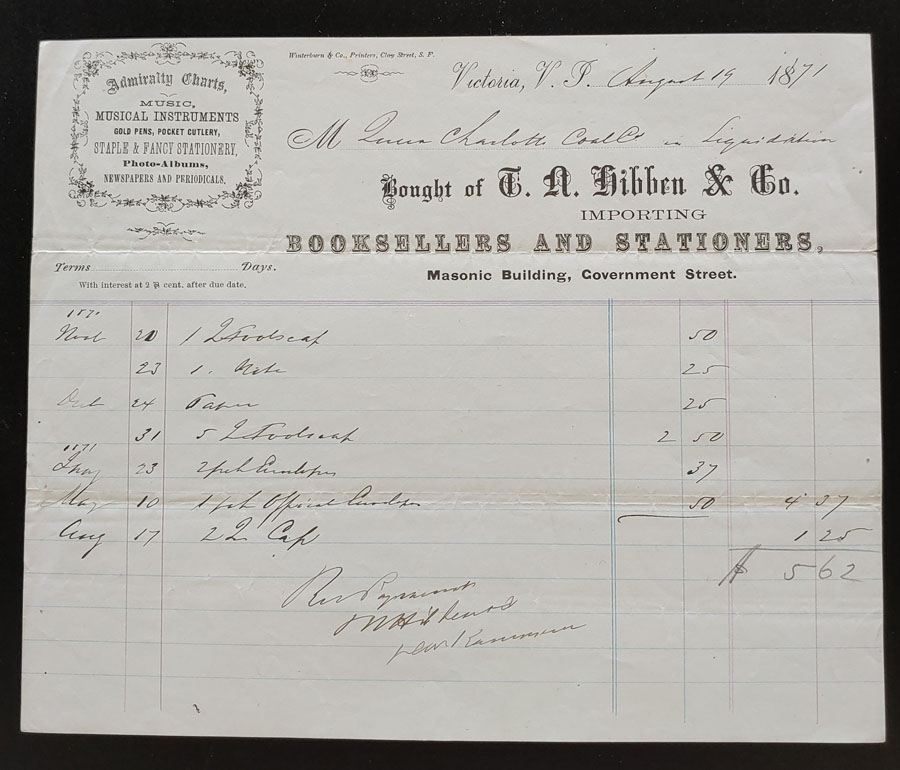 Admiralty Charts,
MUSIC,
MUSICAL INSTRUMENTS
GOLD PENS, POCKET CUTLERY,
STAPLE & FANCY STATIONERY,
Photo-Albums,
NEWSPAPERS AND PERIODICALS.
Winterburn & Co., Printers, Clay Street, S. F.
Victoria, V. I. August 19 1871
M Queen Charlotte Coal Co in Liquidation
Bought of T. N. Hibben & Co.
IMPORTING
BOOKSELLERS AND STATIONERS,
Masonic Building, Government Street.
Terms Days.
With interest at 2 ⅌ cent. after due date.
1870
Nov 21 1 Q Foolscap 50
23 1. Note 25
24 Paper 25
31 5 Q Foolscap 2 50
1871
23 2 pk Envelopes 37
May 10 1 pk Official Envelopes 50 4 37
Aug 17 2 Q Cap 1 25
$ 5 62
Rec Payment